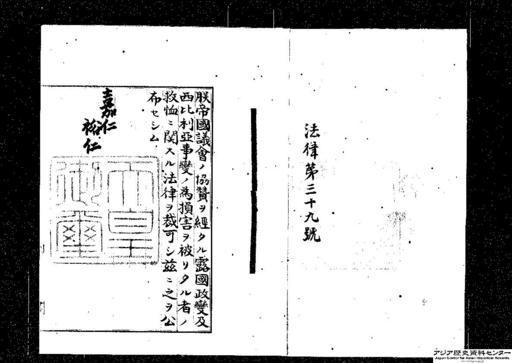 法律第三十九號
朕帝國議會ノ協贊ヲ經タル露國政變及
西比利亞事變ノ為損害ヲ被リタル者ノ
救恤ニ関スル法律ヲ裁可シ茲ニ之ヲ公
布セシム
嘉仁
裕仁
天皇
御璽
アジア歴史資料センター
Japan Center for Asian Historical Records